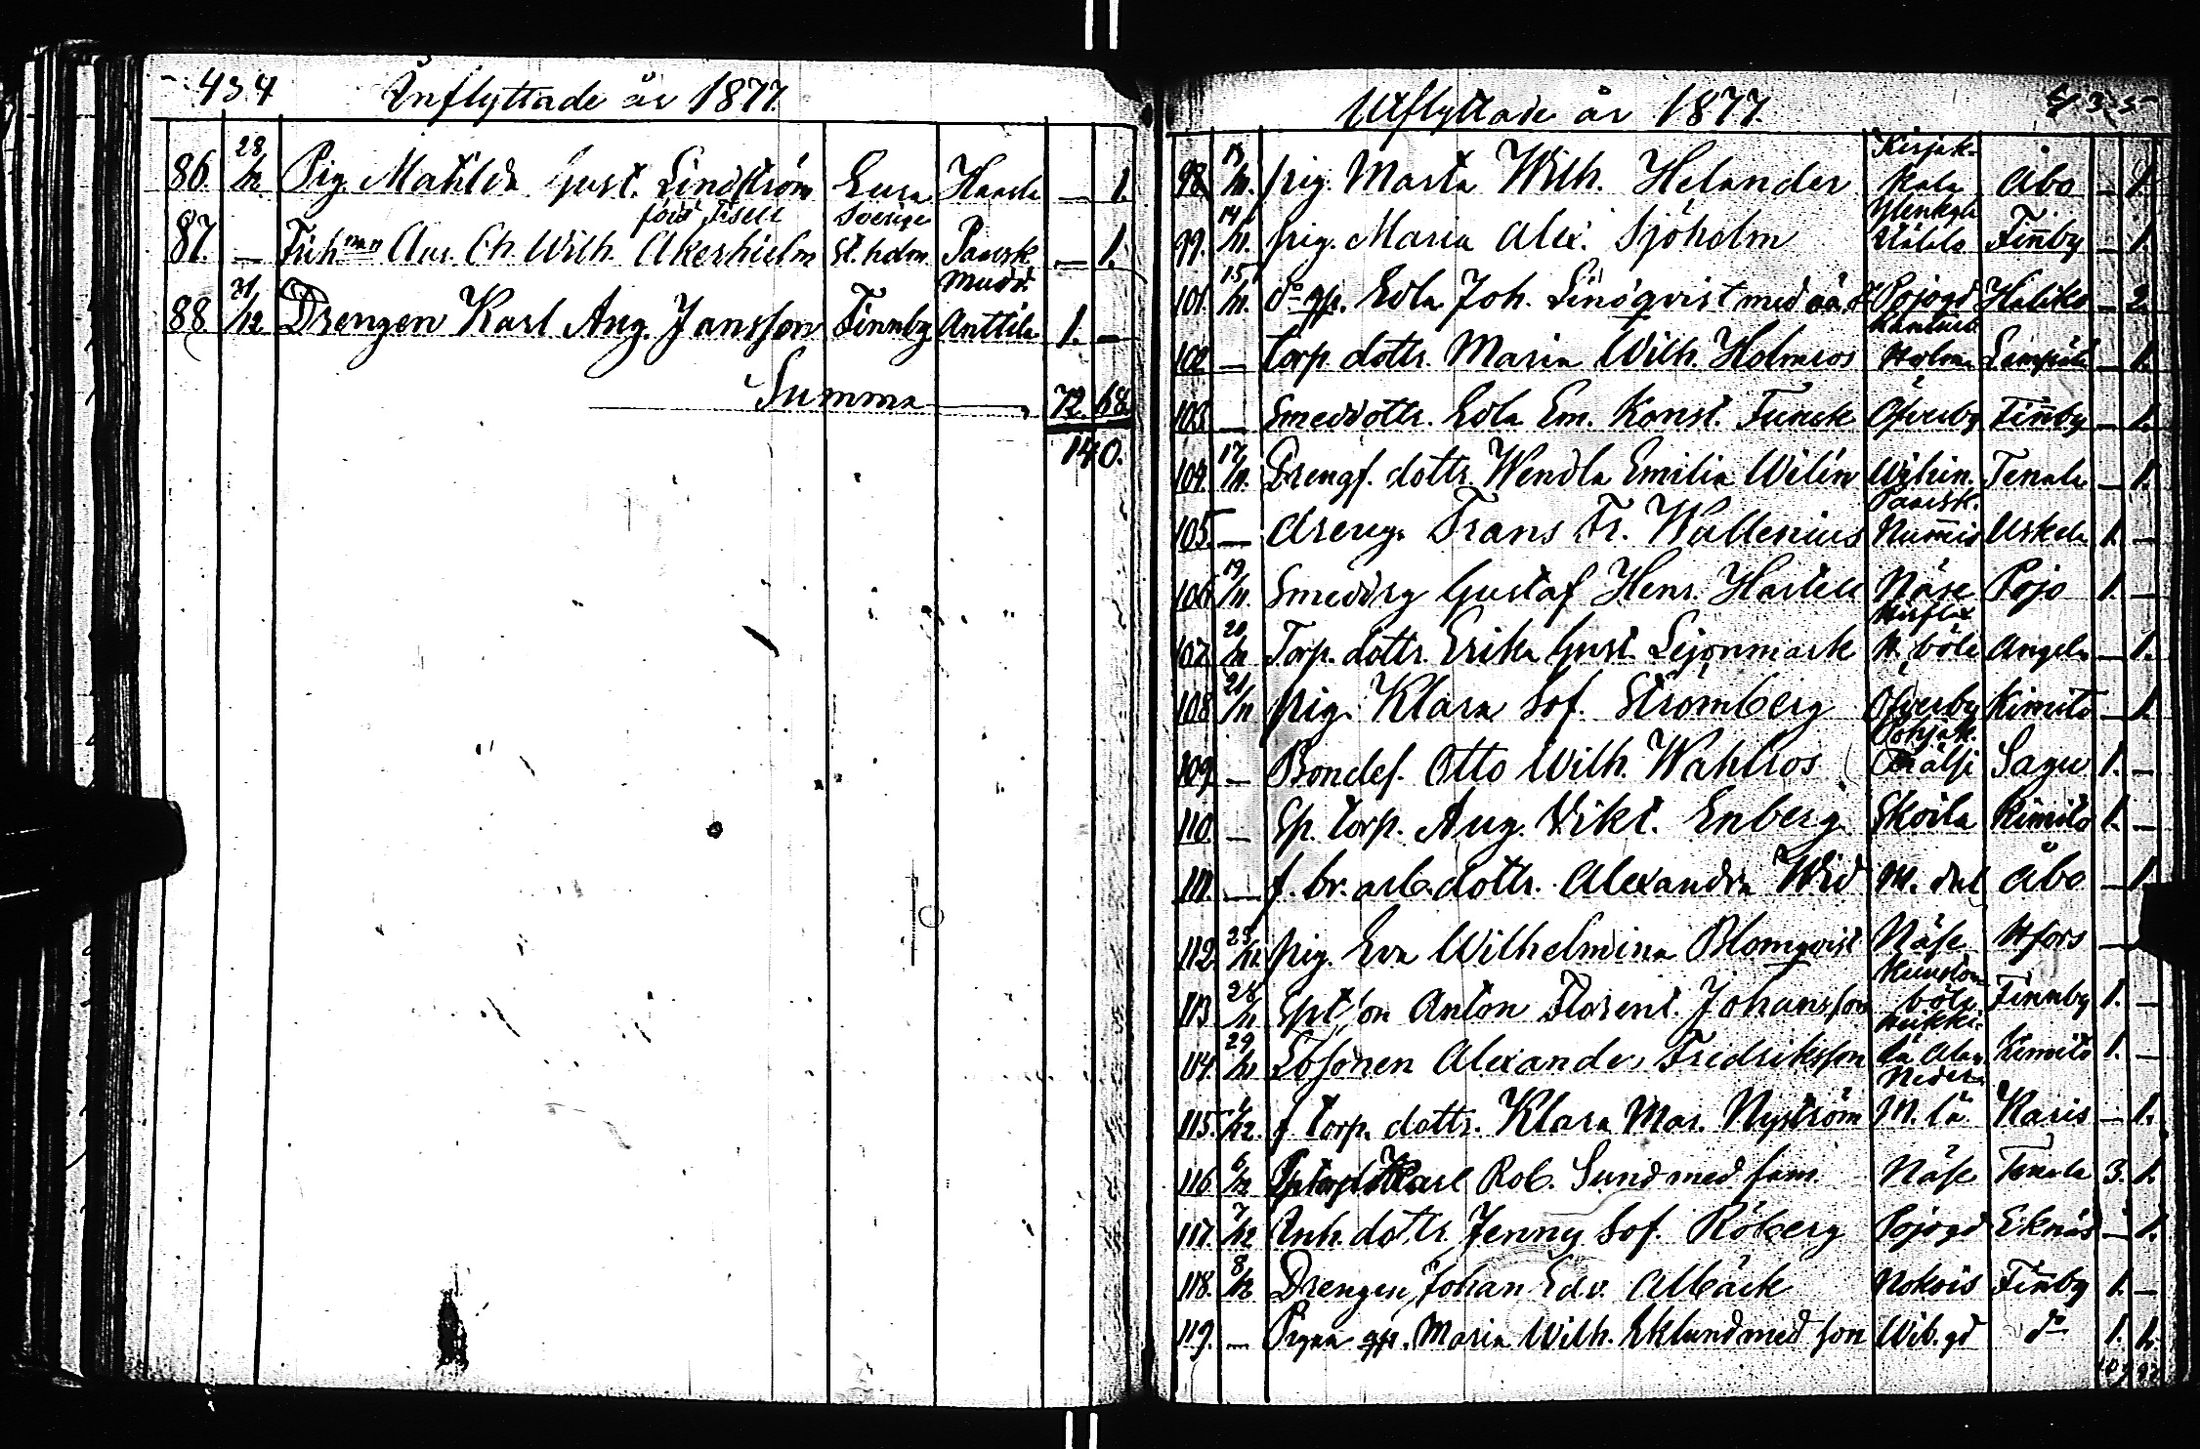 434 Inflyttade år 1877.
86. 28/12 Pig. Matilda Gust. Lindström Eura Haarla — 1.
född Tisell Sverige
87. — Frih.nan Aur. Ch. Wilh. Åkerhielm St.holm Paarsk. — 1.
Mudd.
88 31/12 Drengen Karl Aug. Jansson Finnby Anttila 1. —
Summa 72. 68.
140.
Utflyttade år 1877. 435
Kirjak-
98. 13/11. pig. Marta Wilh. Helander kala Åbo — 1.
99. 14/11. pig. Maria Alex. Sjöholm Finby — 1.
101. 15/11. do gp. Edla Joh. Lindqvist med oä. d. Pojogd Haliko — 2.
102 — Torp. dottr. Maria Wilh. Holmros Holma — 1.
103. — Smeddottr. Edla Em. Konst. Funck Öfverby Finby — 1.
104. 17/11. Drengf. dottr. Wendla Emilia Wilén Tenala — 1.
Paarsk.
105. — dreng. Frans Fr. Wallenius Nummis Uskela 1. —
106. 19/11. Smeddrg Gustaf Henr. Näse Pojo 1. —
107. 20/11 Torp. dottr. Erika Gust. Lejonmark böle Angeln — 1.
108. 21/11 pig. Klara Sof. Strömberg Öfverby Kimito — 1.
Pohjak.
109. — Bondes. Otto Wilh. Wahlros Sagu 1. —
110. — Sp. torp. Aug. Vikt. Enberg Skoila Kimito 1. —
111. — f. br. arb. dottr. Alexandra Wid M. dal Åbo — 1.
112. 23/11. pig. Eva Wilhelmina Blomqvist Näse Hfors —
113 28/11 Spt. son Anton Florent. Johansson böle Finnby 1. —
Heikki-
114. 29/11 Lösdnen Alexander Fredriksson lä Alan Kimito 1. —
Neder-
115. 4/12. f torp. dottr. Klara Mar. Nyström M. lä Karis — 1.
116. 6/12 Karl Rob. Sund med fam. Näse Tenala 3. 1.
117. 7/12 Inh. dottr. Jenny Sof. Röberg Pojogd Eknäs — 1.
118. 8/12 Drengen Johan Edv. Albäck Nokois Finby 1. —
119. — Pigan gp. Maria Wilh. Eklund med son Wib. gd do 1. 1.